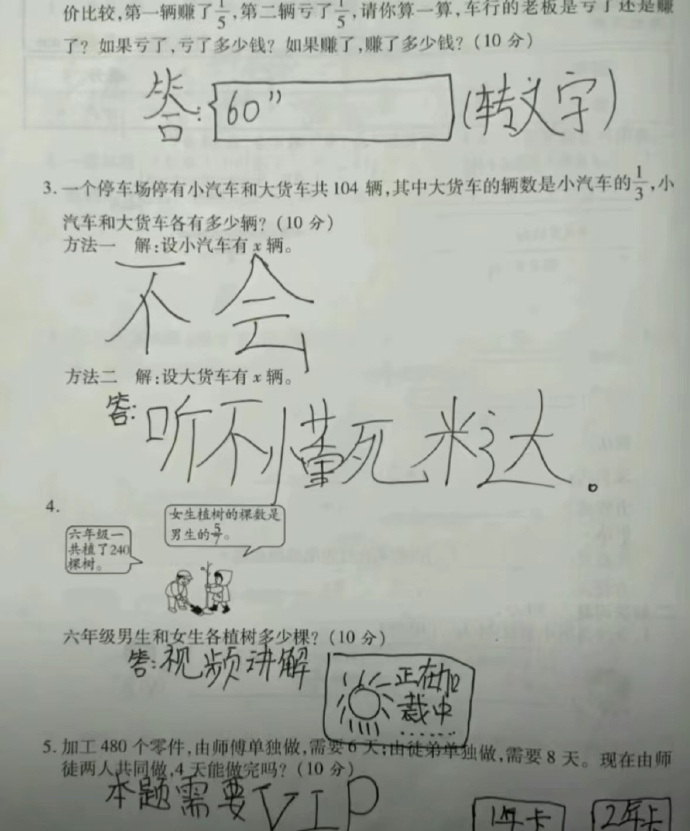 价比较,第一辆赚了1/5,第二辆亏了1/5,请你算一算,车行的老板是亏了还是赚
了?如果亏了,亏了多少钱?如果赚了,赚了多少钱?(10分)
答: 60” (转文字)
3.一个停车场停有小汽车和大货车共104辆,其中大货车的辆数是小汽车的1/3,小
汽车和大货车各有多少辆?(10分)
方法一 解:设小汽车有x辆。
不会
方法二 解:设大货车有x辆。
答:听不懂死米达。
4.
女生植树的棵数是
男生的5/7。
六年级一
共植了240
棵树。
六年级男生和女生各植树多少棵?(10分)
答:视频讲解
正在加
载中......
5.加工480个零件,由师傅单独做,需要6天;由徒弟单独做,需要8天。现在由师
徒两人共同做,4天能做完吗?(10分)
本题需要VIP
1年卡 2年卡